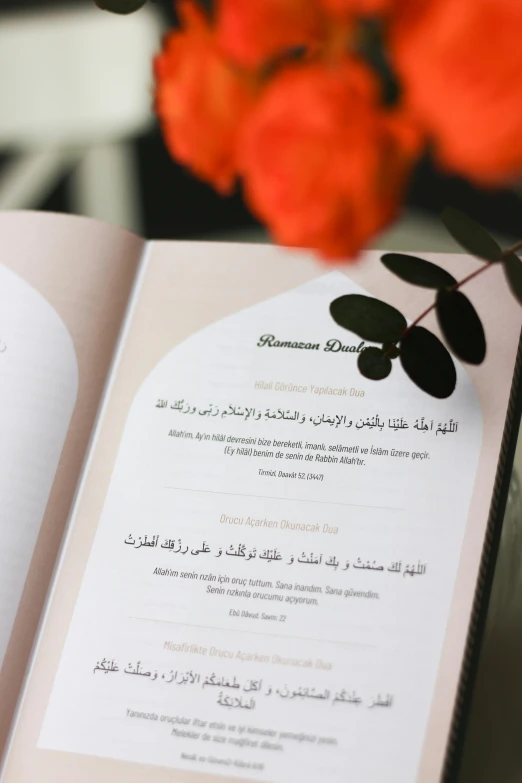 Ramazan Duala
Hilali Görünce Yapılacak Dua
اَللّٰهُمَّ اَهِلَّهُ عَلَيْنَا بِالْيُمْنِ وَالإِيمَانِ، وَالسَّلاَمَةِ وَالإِسْلاَمِ رَبِّى وَرَبُّكَ اللهُ
Allah'ım, Ay'ın hilâl devresini bize bereketli, imanlı, selâmetli ve İslâm üzere geçir.
(Ey hilâl) benim de senin de Rabbin Allah'tır.
Tirmizî, Daavât 52, (3447)
Orucu Açarken Okunacak Dua
اَللَّهُمَّ لَكَ صُمْتُ وَ بِكَ آمَنْتُ وَ عَلَيْكَ تَوَكَّلْتُ وَ عَلَى رِزْقِكَ أَفْطَرْتُ
Allah'ım senin rızân için oruç tuttum. Sana inandım. Sana güvendim.
Senin rızkınla orucumu açıyorum.
Ebû Dâvud, Savm: 22
Misafirlikte Orucu Açarken Okunacak Dua
أَفْطَرَ عِنْدَكُمُ الصَّائِمُونَ، وَ أَكَلَ طَعَامَكُمُ الأَبْرَارُ، وَصَلَّتْ عَلَيْكُمُ
الْمَلاَئِكَةُ
Yanınızda oruçlular iftar etsin ve iyi kimseler yemeğinizi yesin.
Melekler de size mağfiret dilesin.